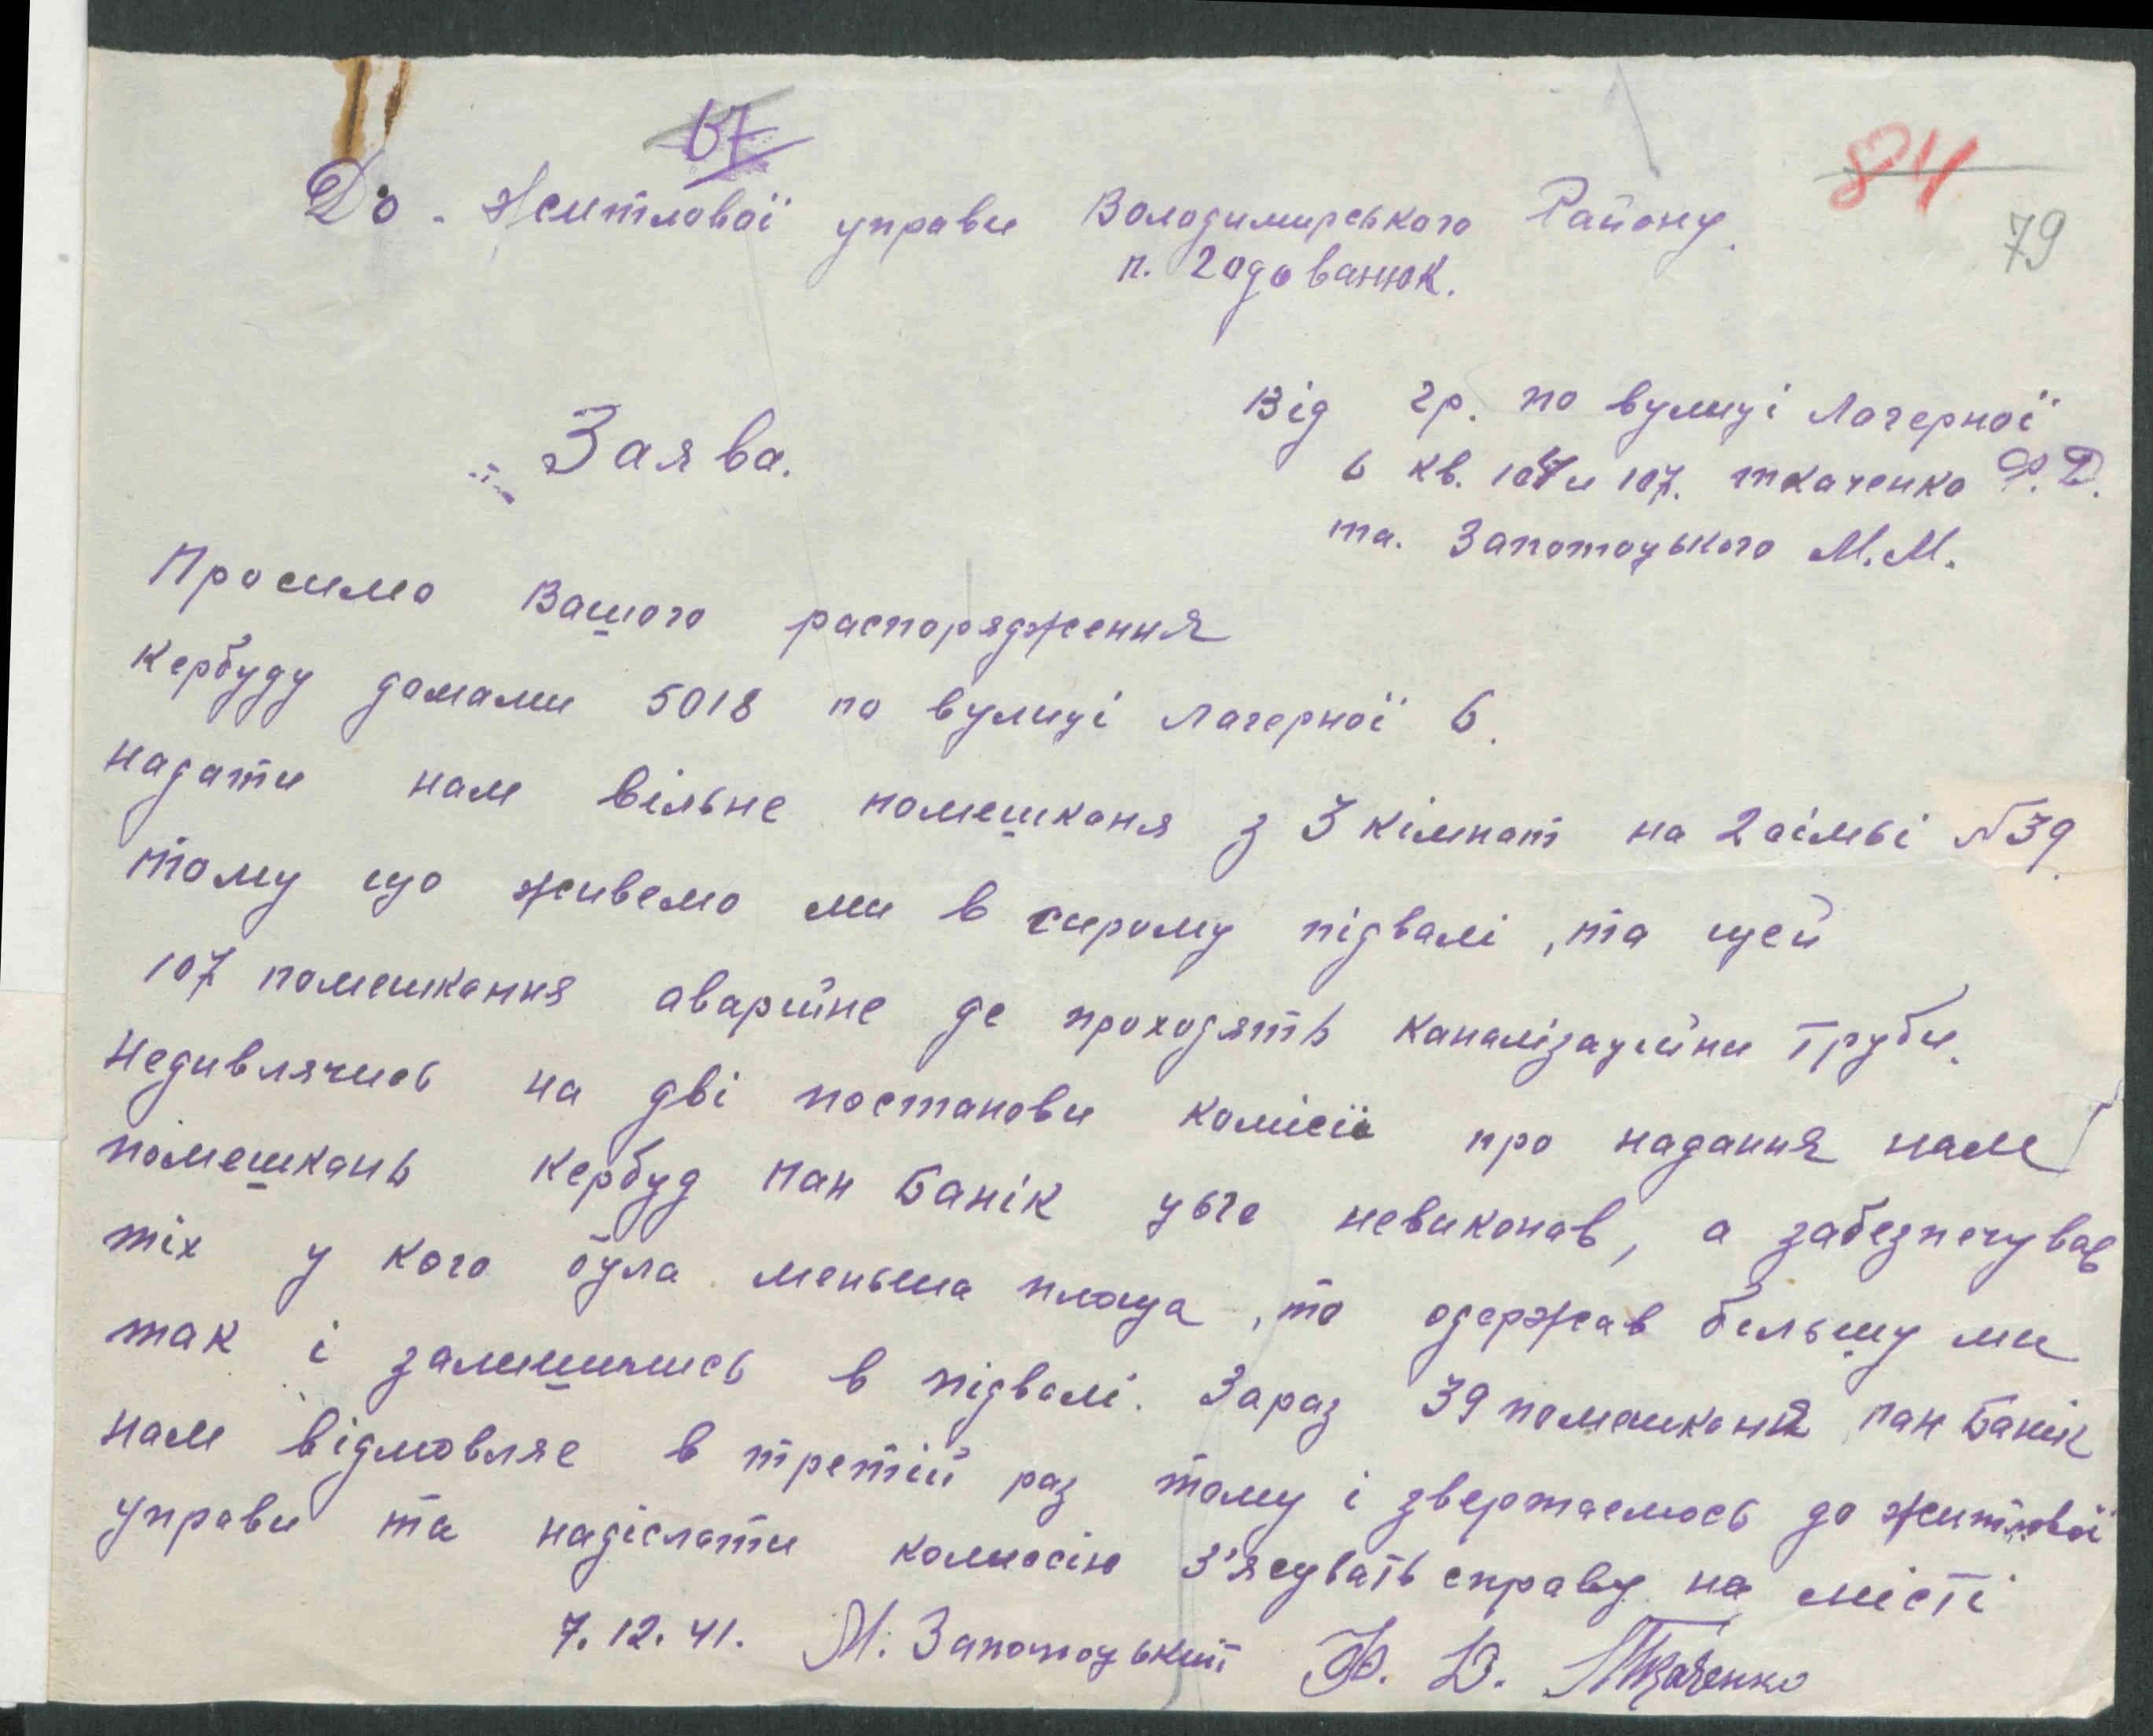 67
84
79
До. Житлової управи Володимирського Району.
п. Годованюк.
Від гр. по вулиці Лагерної
6 кв. 107 и 107. Ткаченко Ф.Д.
та. Запотоцького М.М.
Заява.
Просимо Вашого распорядження
кербуду домами 5018 по вулиці Лагерної 6.
надати нам вільне помешканя з 3 кімнат на 2 сімьі №39.
тому що живемо ми в сирому підвалі, та щей
107 помешкання аварійне де проходять каналізаційни труби.
Недивлячись на дві постанови комісії про надання нам
помешкань кербуд пан Банік цьго невиконав, а забезпечував
тіх у кого була меньша площа, то одержав більшу ми
так і залишились в підвалі. Зараз 39 помешкання пан Банік
нам відмовляе в третій раз тому і звертаємось до житлової
управи та надіслати комиссію з'ясувать справу на місті
7.12.41. М. Запотоцький Ф. Д. Ткаченко